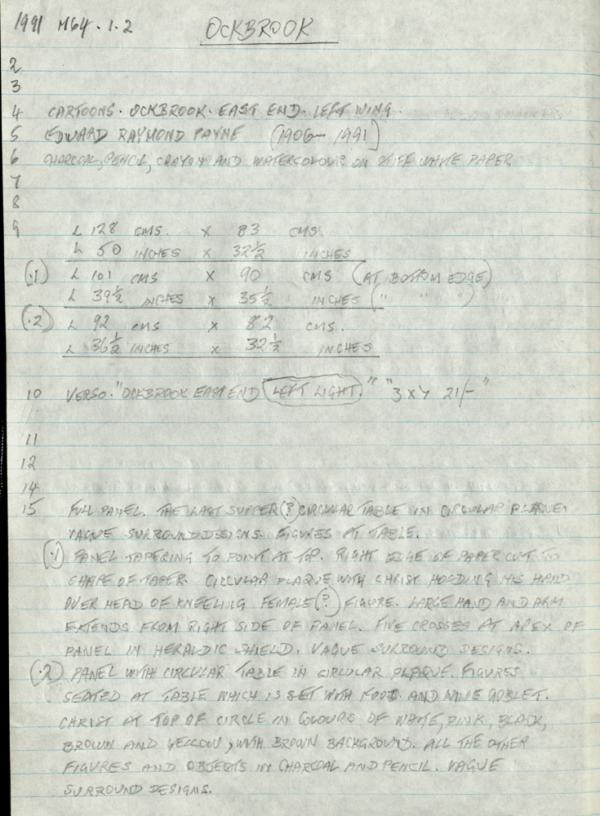 1991 M64.1.2 OCKBROOK
2
3
4 CARTOONS. OCKBROOK. EAST END. LEFT WING.
5 EDWARD RAYMOND PAYNE (1906-1991)
6 CHARCOAL, PENCIL, CRAYON AND WATERCOLOUR ON STIFF WHITE PAPER
7
8
9 L 128 CMS. X 83 CMS.
L 50 INCHES X 32½ INCHES
(.1) L 101 CMS X 90 CMS (AT BOTTOM EDGE)
L 39½ INCHES X 35½ INCHES (" " ")
(.2) L 92 CMS X 82 CMS.
L 36½ INCHES X 32½ INCHES
10 VERSO. "OCKBROOK EAST END LEFT LIGHT." "3 X Y 21/-"
11
12
14
15 FULL PANEL. THE LAST SUPPER (?) CIRCULAR TABLE IN CIRCULAR PLAQUE.
VAGUE SURROUND DESIGNS. FIGURES AT TABLE.
(.1) PANEL TAPERING TO POINT AT TOP. RIGHT EDGE OF PAPER CUT TO
SHAPE OF TAPER. CIRCULAR PLAQUE WITH CHRIST HOLDING HIS HAND
OVER HEAD OF KNEELING FEMALE (?) FIGURE. LARGE HAND AND ARM
EXTENDS FROM RIGHT SIDE OF PANEL. FIVE CROSSES AT APEX OF
PANEL IN HERALDIC SHIELD. VAGUE SURROUND DESIGNS.
(.2) PANEL WITH CIRCULAR TABLE IN CIRCULAR PLAQUE. FIGURES
SEATED AT TABLE WHICH IS SET WITH FOOD AND WINE GOBLET.
CHRIST AT TOP OF CIRCLE IN COLOURS OF WHITE, PINK, BLACK,
BROWN AND YELLOW, WITH BROWN BACKGROUND. ALL THE OTHER
FIGURES AND OBJECTS IN CHARCOAL AND PENCIL. VAGUE
SURROUND DESIGNS.